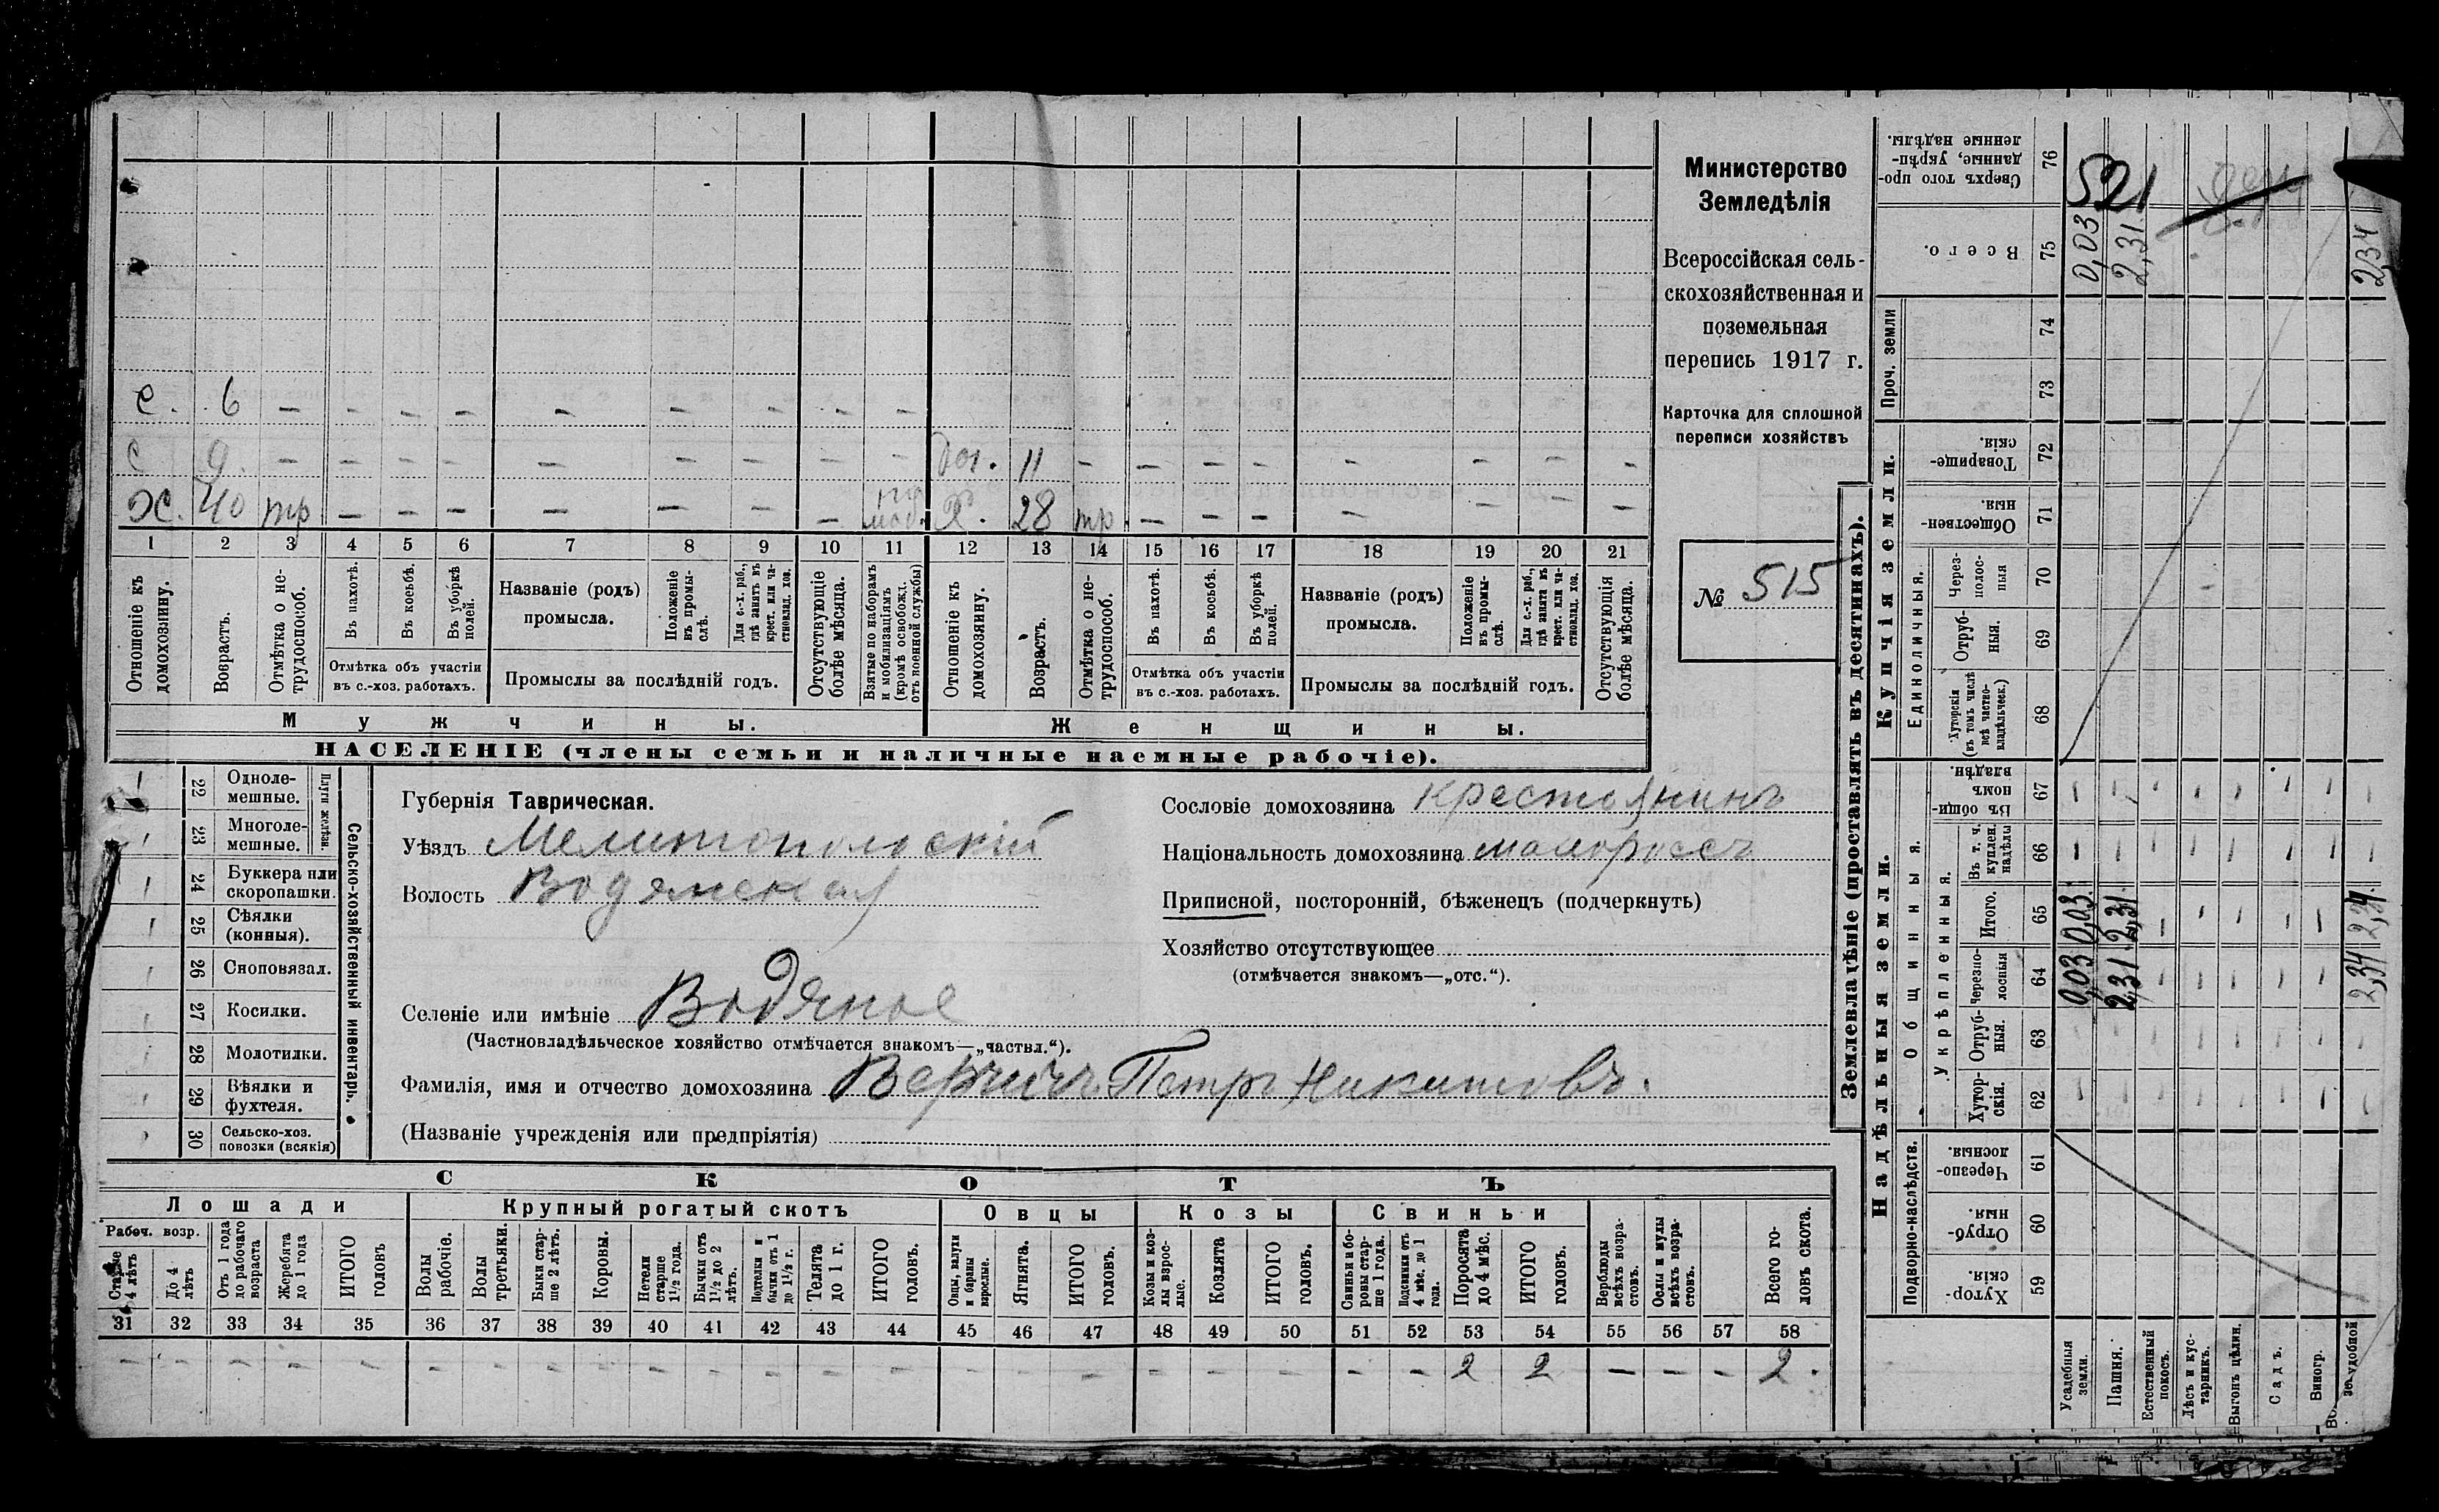 Министерство
Земледѣлія
Всероссійская сель-
скохозяйственная и
поземельная
перепись 1917 г.
Карточка для сплошной
переписи хозяйствъ
№ 515
С. 6 — — — — — — — — —
С 9. — — — — — — — — — доч. 11 — — — — — — — —
Х. 40 тр — — — — — — — по моб. Х. 28 тр — — — — — — —
1 2 3 4 5 6 7 8 9 10 11 12 13 14 15 16 17 18 19 20 21
Отношеніе къ домохозяину.
Возрастъ.
Отмѣтка о не-трудоспособ.
Въ пахотѣ.
Въ косьбѣ.
Въ уборкѣ полей.
Отмѣтка объ участіи
въ с.-хоз. работахъ.
Названіе (родъ)
промысла.
Положеніе въ промы-слѣ.
Для с.-х. раб., гдѣ занятъ въ крест. или ча-стновлад. хоз.
Промыслы за послѣдній годъ.
Отсутствующіе болѣе мѣсяца.
Взятые по наборамъ и мобилизаціямъ (кромѣ освобожд. отъ военной службы)
Отношеніе къ домохозяину.
Возрастъ.
Отмѣтка о не-трудоспособ.
Въ пахотѣ.
Въ косьбѣ.
Въ уборкѣ полей.
Отмѣтка объ участіи
въ с.-хоз. работахъ.
Названіе (родъ)
промысла.
Положеніе въ промы-слѣ.
Для с.-х. раб., гдѣ занята въ крест. или ча-стновлад. хоз.
Промыслы за послѣдній годъ.
Отсутствующія болѣе мѣсяца.
Мужчины.
Женщины.
НАСЕЛЕНІЕ (члены семьи и наличные наемные рабочіе).
22 Одноле-мешные.
23 Многоле-мешные.
Плуги желѣзн.
24 Буккера или скоропашки.
25 Сѣялки (конныя).
26 Сноповязал.
27 Косилки.
28 Молотилки.
29 Вѣялки и фухтеля.
30 Сельско-хоз. повозки (всякія)
Сельско-хозяйственный инвентарь.
Губернія Таврическая.
Уѣздъ Мелитопольскій
Волость Водянская
Селеніе или имѣніе Водяное
(Частновладѣльческое хозяйство отмѣчается знакомъ—„частвл.“).
Фамилія, имя и отчество домохозяина Петръ Никитовъ.
(Названіе учрежденія или предпріятія)
Сословіе домохозяина крестьянинъ
Національность домохозяина малороссъ
Приписной, посторонній, бѣженецъ (подчеркнуть)
Хозяйство отсутствующее
(отмѣчается знакомъ—„отс.“).
СКОТЪ
Лошади
Крупный рогатый скотъ
Овцы
Козы
Свиньи
Рабоч. возр.
Старше 4 лѣтъ
До 4 лѣтъ
Отъ 1 года до рабочаго возраста
Жеребята до 1 года
ИТОГО головъ
Волы рабочіе.
Волы третьяки.
Быки стар-ше 2 лѣтъ.
Коровы.
Нетели старше 1½ года.
Бычки отъ 1½ до 2 лѣтъ.
Нетелки и бычки отъ 1 до 1½ г.
Телята до 1 г.
ИТОГО головъ.
Овцы, валухи и бараны взрослые.
Ягнята.
ИТОГО головъ.
Козы и коз-лы взрос-лые.
Козлята
ИТОГО головъ.
Свиньи и бо-ровы стар-ше 1 года.
Подсвинки отъ 4 мѣс. до 1 года.
Поросята до 4 мѣс.
ИТОГО головъ.
Верблюды всѣхъ возра-стовъ.
Ослы и мулы всѣхъ возра-стовъ.
Всего го-ловъ скота.
31 32 33 34 35 36 37 38 39 40 41 42 43 44 45 46 47 48 49 50 51 52 53 54 55 56 57 58
— — — — — — — — — — — — — — — — — — — — — — 2 2 — — — 2.
Землевладѣніе (проставлять въ десятинахъ).
Надѣльныя земли.
Купчія земли.
Проч. земли
Сверхъ того про-данные, укрѣп-ленные надѣлы. 76
521
Всего. 75 0,03 2,31 2,34
74
73
Товарище-скія. 72
Обществен-ныя. 71
Единоличныя.
Через-полос-ныя 70
Отруб-ныя. 69
Хуторскія (въ томъ числѣ всѣ частно-владѣльческ.) 68
Общинныя.
Въ общин-номъ владѣн. 67
Укрѣпленныя.
Въ т. ч. куплен. надѣлы 66
Итого. 65 0,03 2,31 2,34
Черезпо-лосныя 64 0,03 2,31 2,34
Отруб-ныя. 63
Хутор-скія. 62
Подворно-наслѣдств.
Черезпо-лосныя. 61
Отруб-ныя. 60
Хутор-скія. 59
Усадебныя земли.
Пашня.
Естественный покосъ.
Лѣсъ и кус-тарникъ.
Выгонъ цѣлин.
Садъ.
Виногр.
удобной